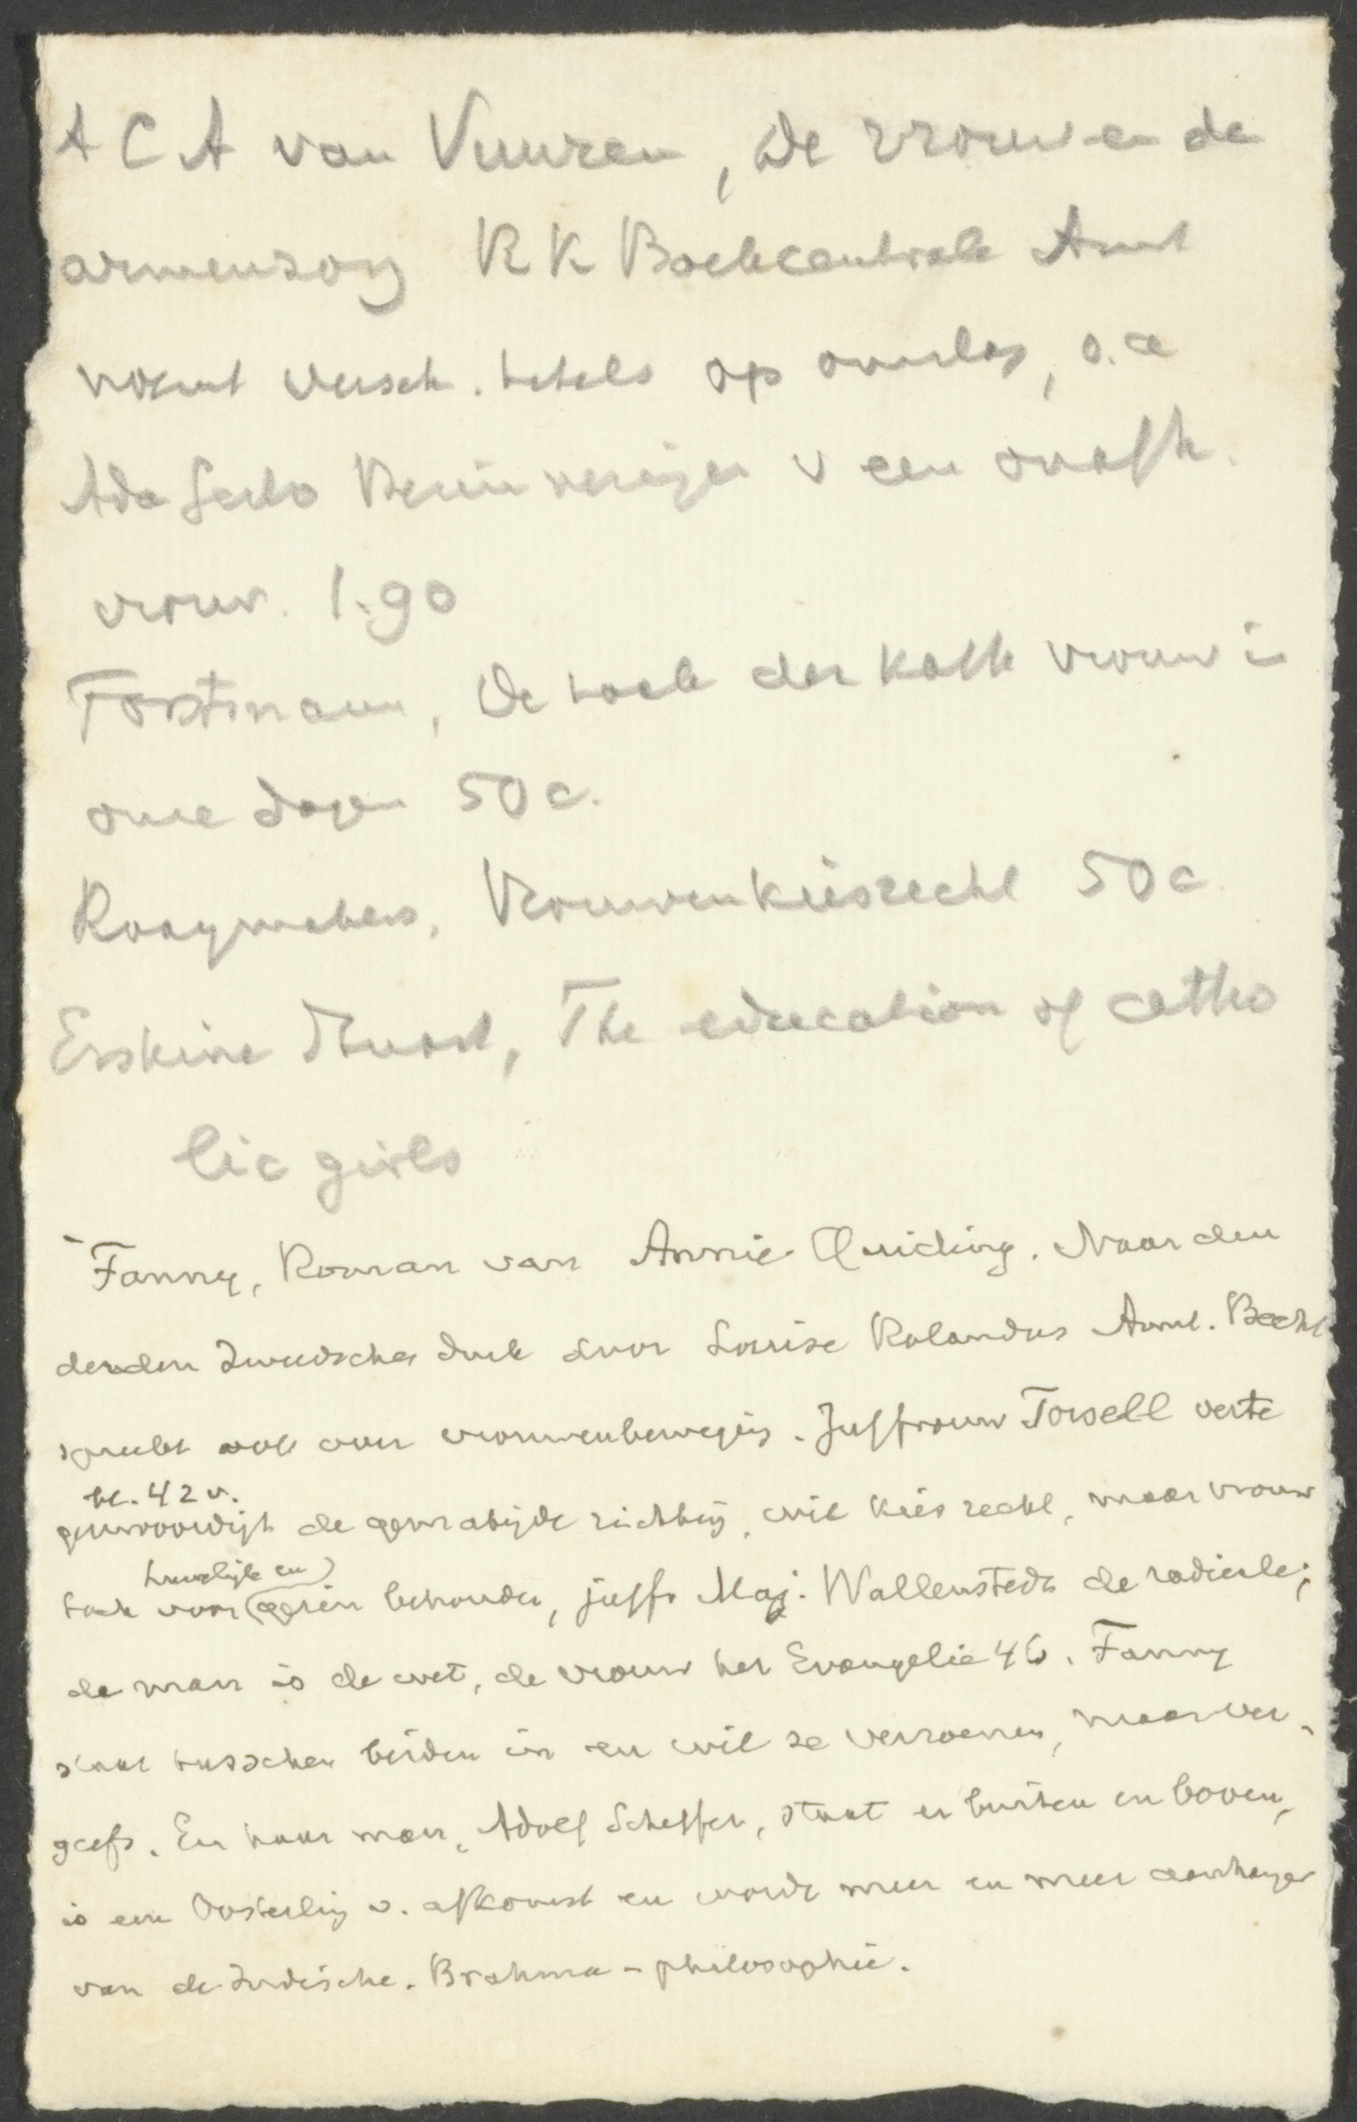 A C A van Vuuren, De vrouw en de
armenzorg R K Boekcentrale Amst
noemt versch. titels op omslag, o.a
Ada Herinneringen v een onafh.
vrouw. 1.90
Forstmann, De taak der kath vrouw in
onze dagen 50 c.
Raaymakers, Vrouwenkiesrecht 50 c
Erskine Stuart, The education of catho
lic girls
Fanny, Roman van Annie Quiding. Naar den
derden Zweedschen druk door Louise Rolandus Amst. Becht
spreekt ook over vrouwenbeweging. Juffrouw Torsell verte
bl. 42 v.
genwoordigt de gematigde richting, wil kiesrecht, maar vrouw
huwelijk en
taak voor gezin behouden, juffr Maj. Wallenstedt de radicale;
de man is de wet, de vrouw het Evangelie 46. Fanny
staat tusschen beiden in en wil ze verzoenen, maar ver-
geefs. En haar man, Adolf Scheffer, staat er buiten en boven,
is een Oosterling v. afkomst en wordt meer en meer aanhanger
van de Indische. Brahma-philosophie.